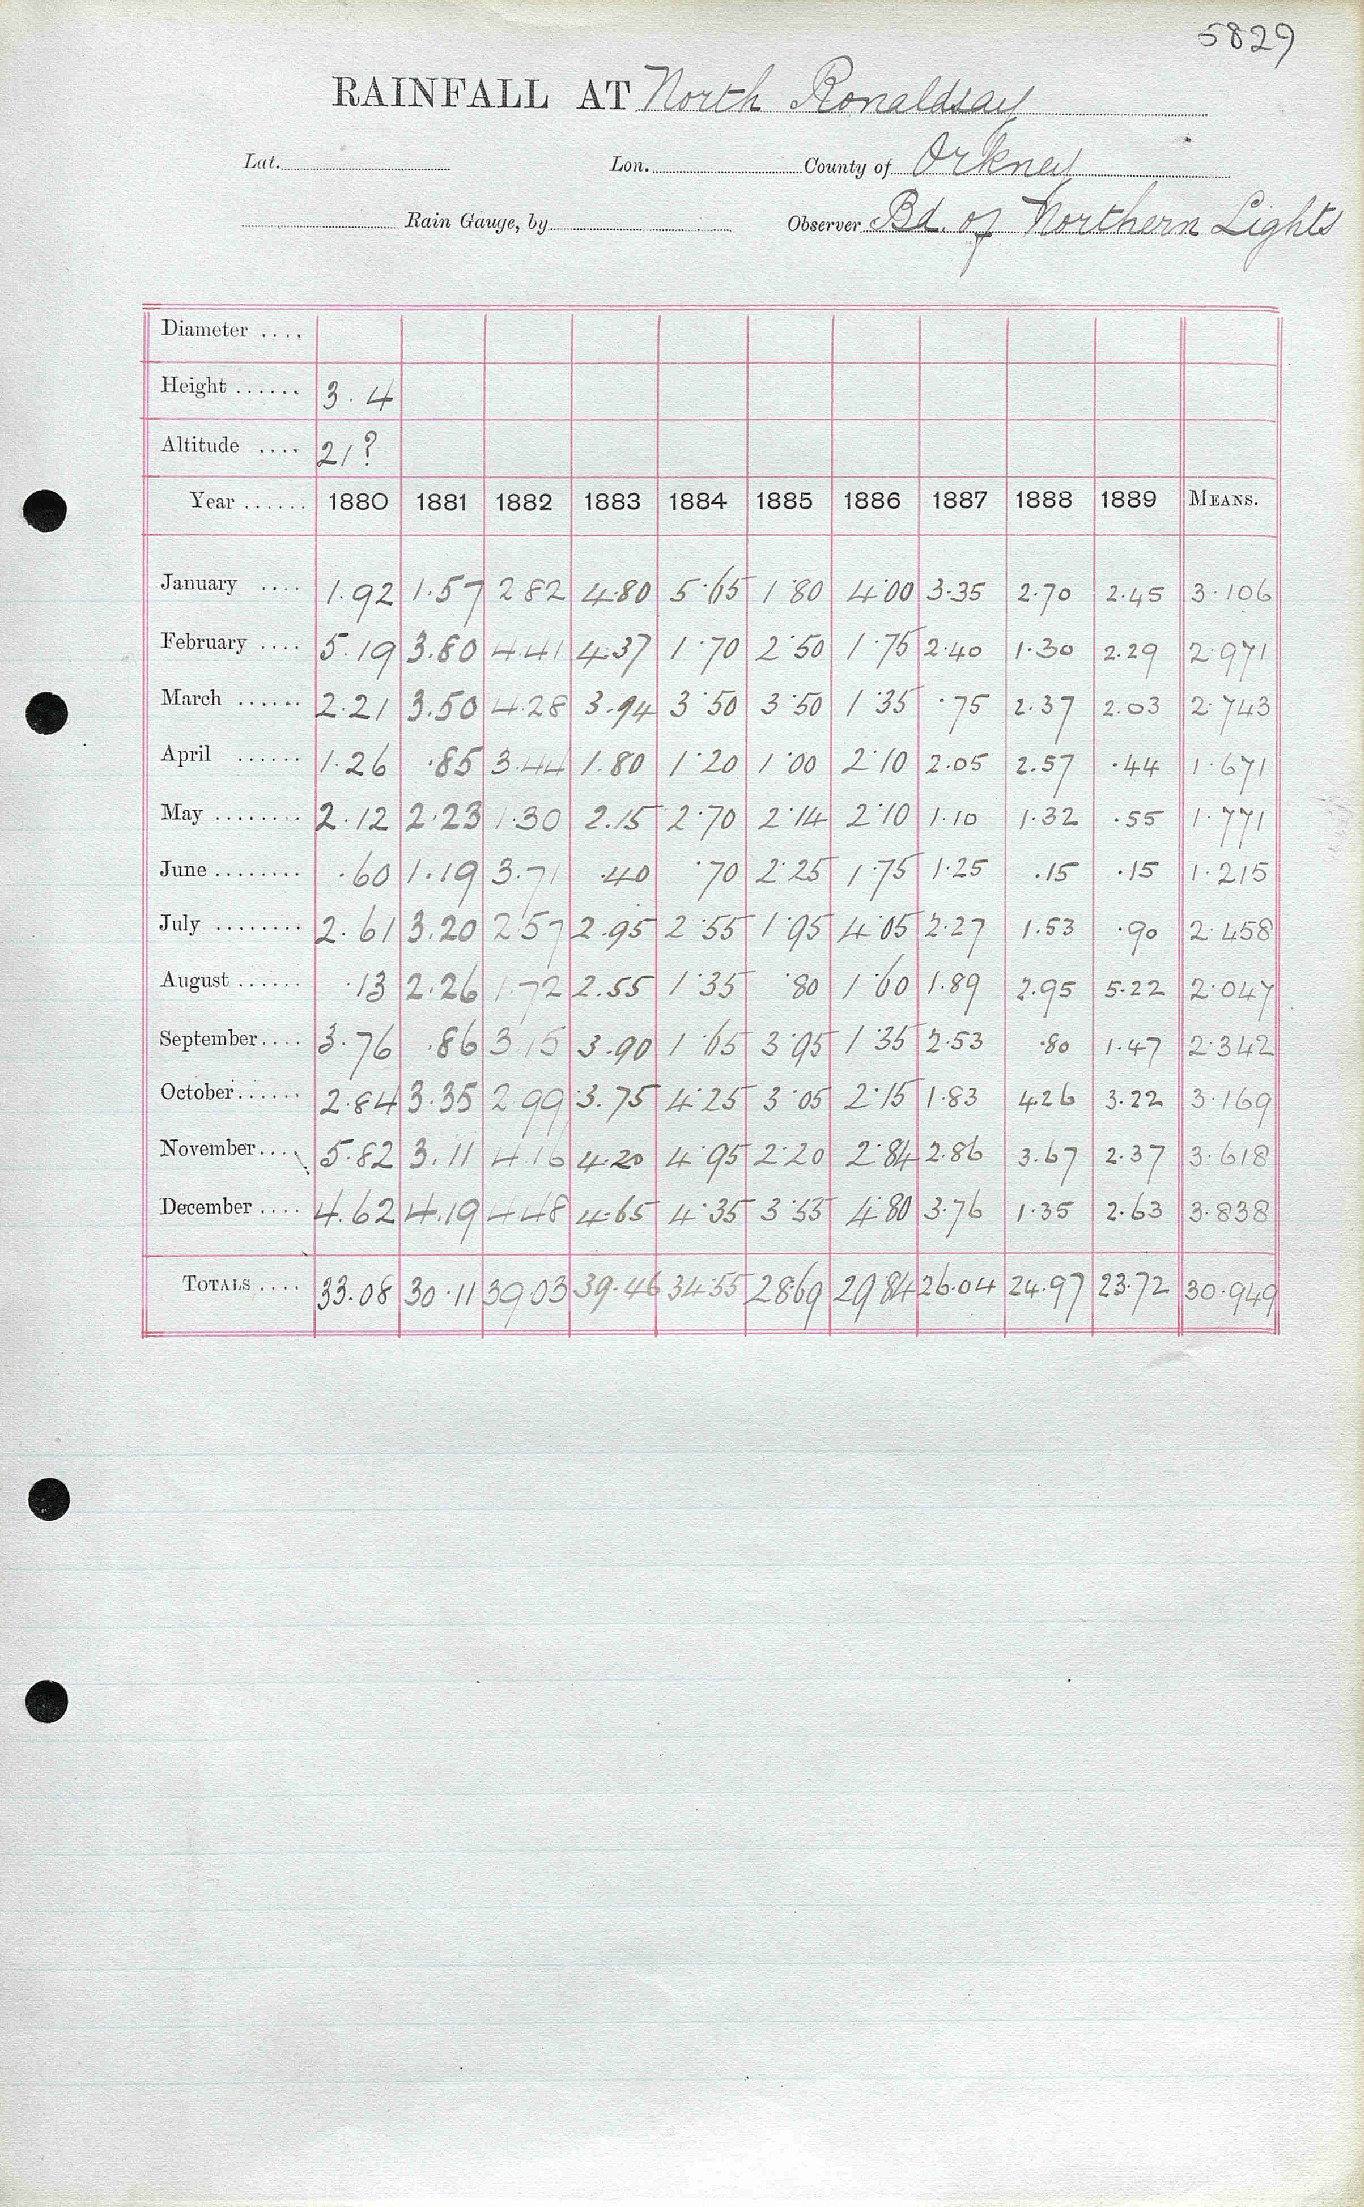 5829
RAINFALL AT North Ronaldsay
Lat. Lon. County of Orkney
Rain Gauge, by Observer Bd. of Northern Lights
Diameter ....
Height ...... 3.4
Altitude .... 21?
Year ...... 1880 1881 1882 1883 1884 1885 1886 1887 1888 1889 MEANS.
January .... 1.92 1.57 2 82 4.80 5.65 1.80 4.00 3.35 2.70 2.45 3.106
February .... 5.19 3.80 4.41 4.37 1.70 2.50 1.75 2.40 1.30 2.29 2.971
March ...... 2.21 3.50 4.28 3.94 3.50 3.50 1.35 .75 2.37 2.03 2.743
April ...... 1.26 .85 3.44 1.80 1.20 1.00 2.10 2.05 2.57 .44 1.671
May ........ 2.12 2.23 1.30 2.15 2.70 2.14 2.10 1.10 1.32 .55 1.771
June ........ .60 1.19 3.71 .40 .70 2.25 1.75 1.25 .15 .15 1.215
July ........ 2.61 3.20 2.57 2.95 2.55 1.95 4.05 2.27 1.53 .90 2.458
August ...... .13 2.26 1.72 2.55 1.35 .80 1.60 1.89 2.95 5.22 2.047
September.... 3.76 .86 3.15 3.90 1.65 3.95 1.35 2.53 .80 1.47 2.342
October...... 2.84 3.35 2.99 3.75 4.25 3.05 2.15 1.83 4.26 3.22 3.169
November.... 5.82 3.11 4.16 4.20 4.95 2.20 2.84 2.86 3.67 2.37 3.618
December .... 4.62 4.19 4.48 4.65 4.35 3.55 4.80 3.76 1.35 2.63 3.838
TOTALS .... 33.08 30.11 39.03 39.46 34.55 28.69 29.84 26.04 24.97 23.72 30.949